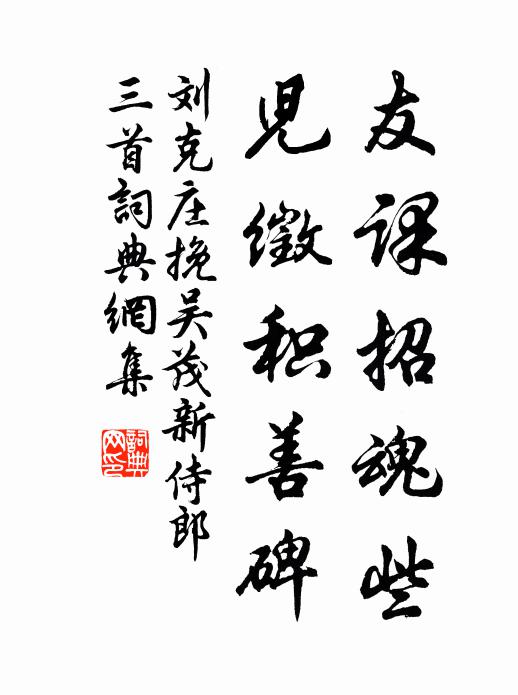 友课招魂些
児徵积善碑
刘克庄挽吴茂新侍郎
三首詞典網集
詞典网印